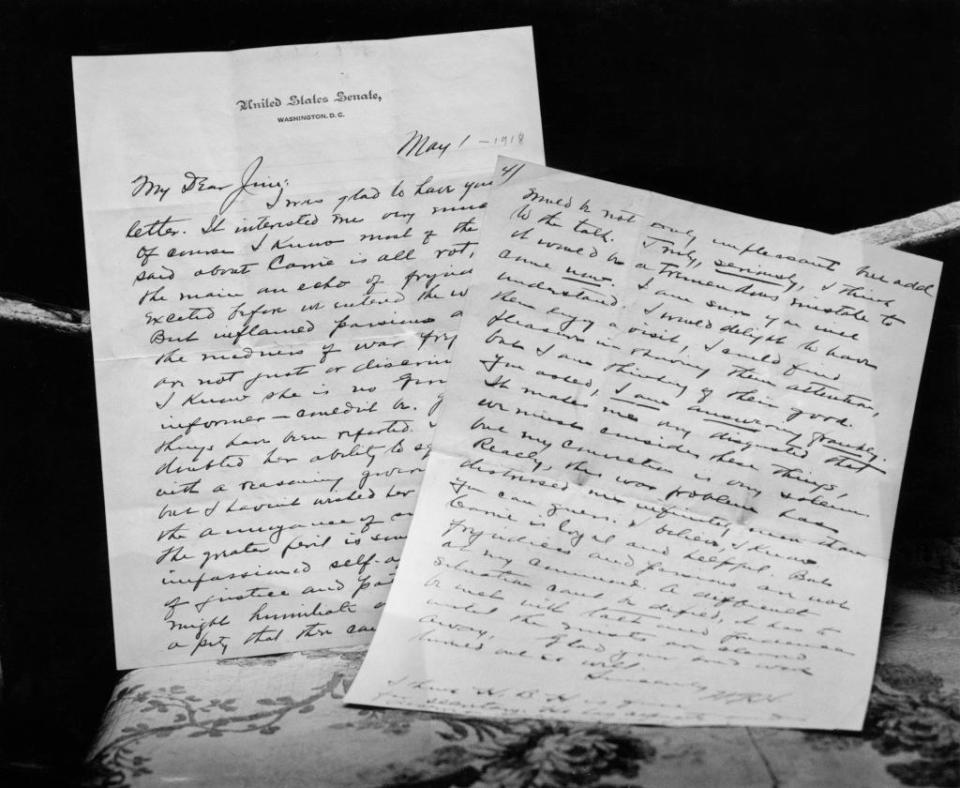 United States Senate,
WASHINGTON, D.C.
May 1 - 1918
My Dear Jim:
I was glad to have you
letter. It interested me very much
Of course I know most of the
said about Carrie is all rot,
the main an echo of prejud
excited before we entered the w
But inflamed passions a
the madness of war
are not just or discrim
I know she is no
informer -
things have been reported.
doubted her ability to
with a reasoning govern
but I havent wished her
the annoyance of
the greater peril is
impassioned self-
of justice and pa
might humiliate
a pity that there
4/
would be not only unpleasant but add
to the talk. Truly, seriously, I think
it would be a tremendous mistake to
come now. I am sure you will
understand. I would delight to have
them enjoy a visit, I could find
pleasure in sharing their attention,
but I am thinking of their good.
You asked, I am answering frankly.
It makes me very disgusted that
we must consider these things,
but my conviction is very solemn.
Really, this war problem has
distressed me infinitely more than
you can guess. I believe, I know
Carrie is loyal and helpful. But
prejudices and passions are not
at my command. A difficult
situation cant be defied, it has to
be met with tact and prudence
until the are cleared
away. Glad your
turned out so well.
Sincerely WGH